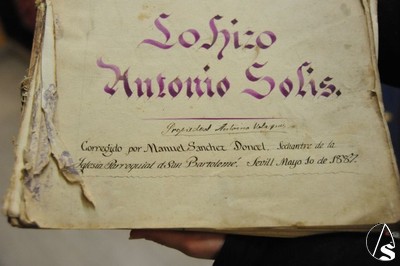 Lo hizo
Antonio Solis.
Propiedad Antonio
Corregido por Manuel Sanchez Doncel. Sochantre de la
Iglesia Parroquial de San Bartolomé. Sevill Mayo 10 de 1887.